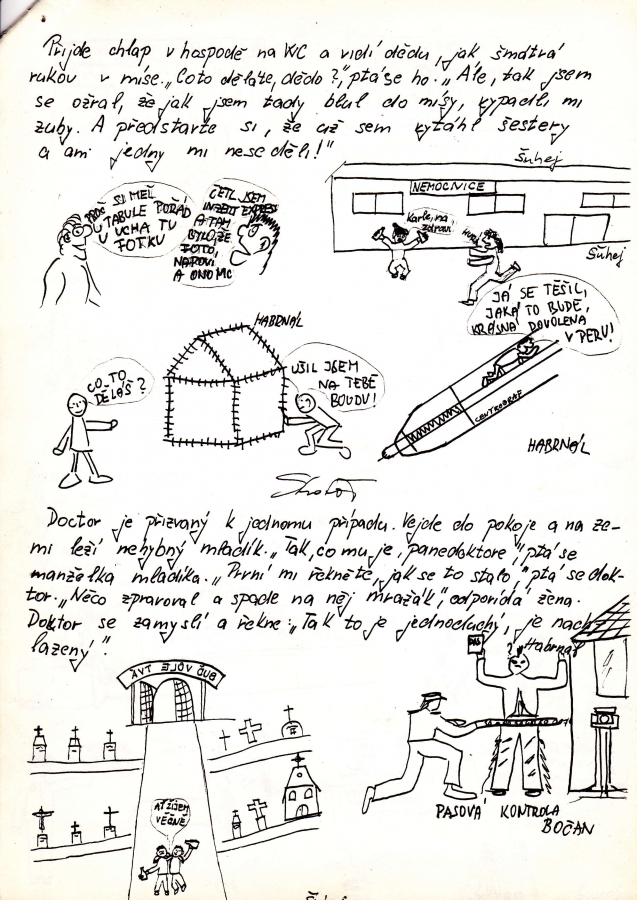 Přijde chlap v hospodě na WC a vidí dědu, jak šmátrá
rukou v míse. „Co to děláte, dědo?", ptá se ho. „Ale, tak jsem
se ožral, že jak jsem tady blul do mísy, vypadli mi
zuby. A představte si, že už sem vytáhl šestery
a ani jedny mi nesedĕli!"
Šuhej
PROČ SI MEL
V TABULE POŘÁD
U UCHA TU
FOTKU
ČETL JSEM
INZERT EXPRES
A TAM
BYLO, ŽE
FOTO,
NAPOVÍ
A ONO NIC
NEMOCNICE
Karle, na
zdraví
Šuhej
JÁ SE TĚŠIL,
JAKÁ TO BUDE,
KRÁSNÁ DOVOLENA
V PERU!
CENTROGRAF
HABRNÁL
HABRNÁL
CO TO
DĚLÁŠ?
UŠIL JSEM
NA TEBĚ
BOUDU!
Doctor je přizvaný k jednomu případu. Vejde do pokoje a na ze-
mi leží nehybný mladík. „Tak, co mu je, panedoktore," ptá se
manželka mladíka. „První mi řekněte, jak se to stalo," ptá se dok-
tor. „Něco zpravoval a spadle na něj mražák", odpovídá žena.
Doktor se zamyslí a řekne: „Tak to je jednoduchý, je nach-
lazený".
Habrnál
PAS
BUĎ VŮLE TVÁ
AŤ ŽIJEM
VĚČNĚ
PASOVÁ KONTROLA
BOČAN